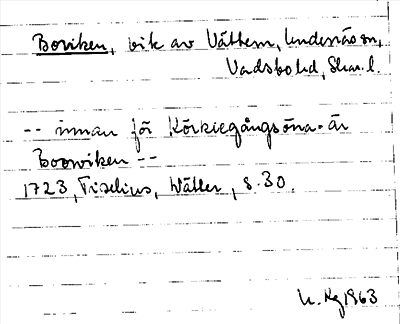 Boviken, vik av Vättern, Undenäs sn,
Vadsbo hd, Skar. l.
-- innan för Körkiegångsöna är
Boowiken --
1723, Tiselius, Wätter, s. 30.
1963